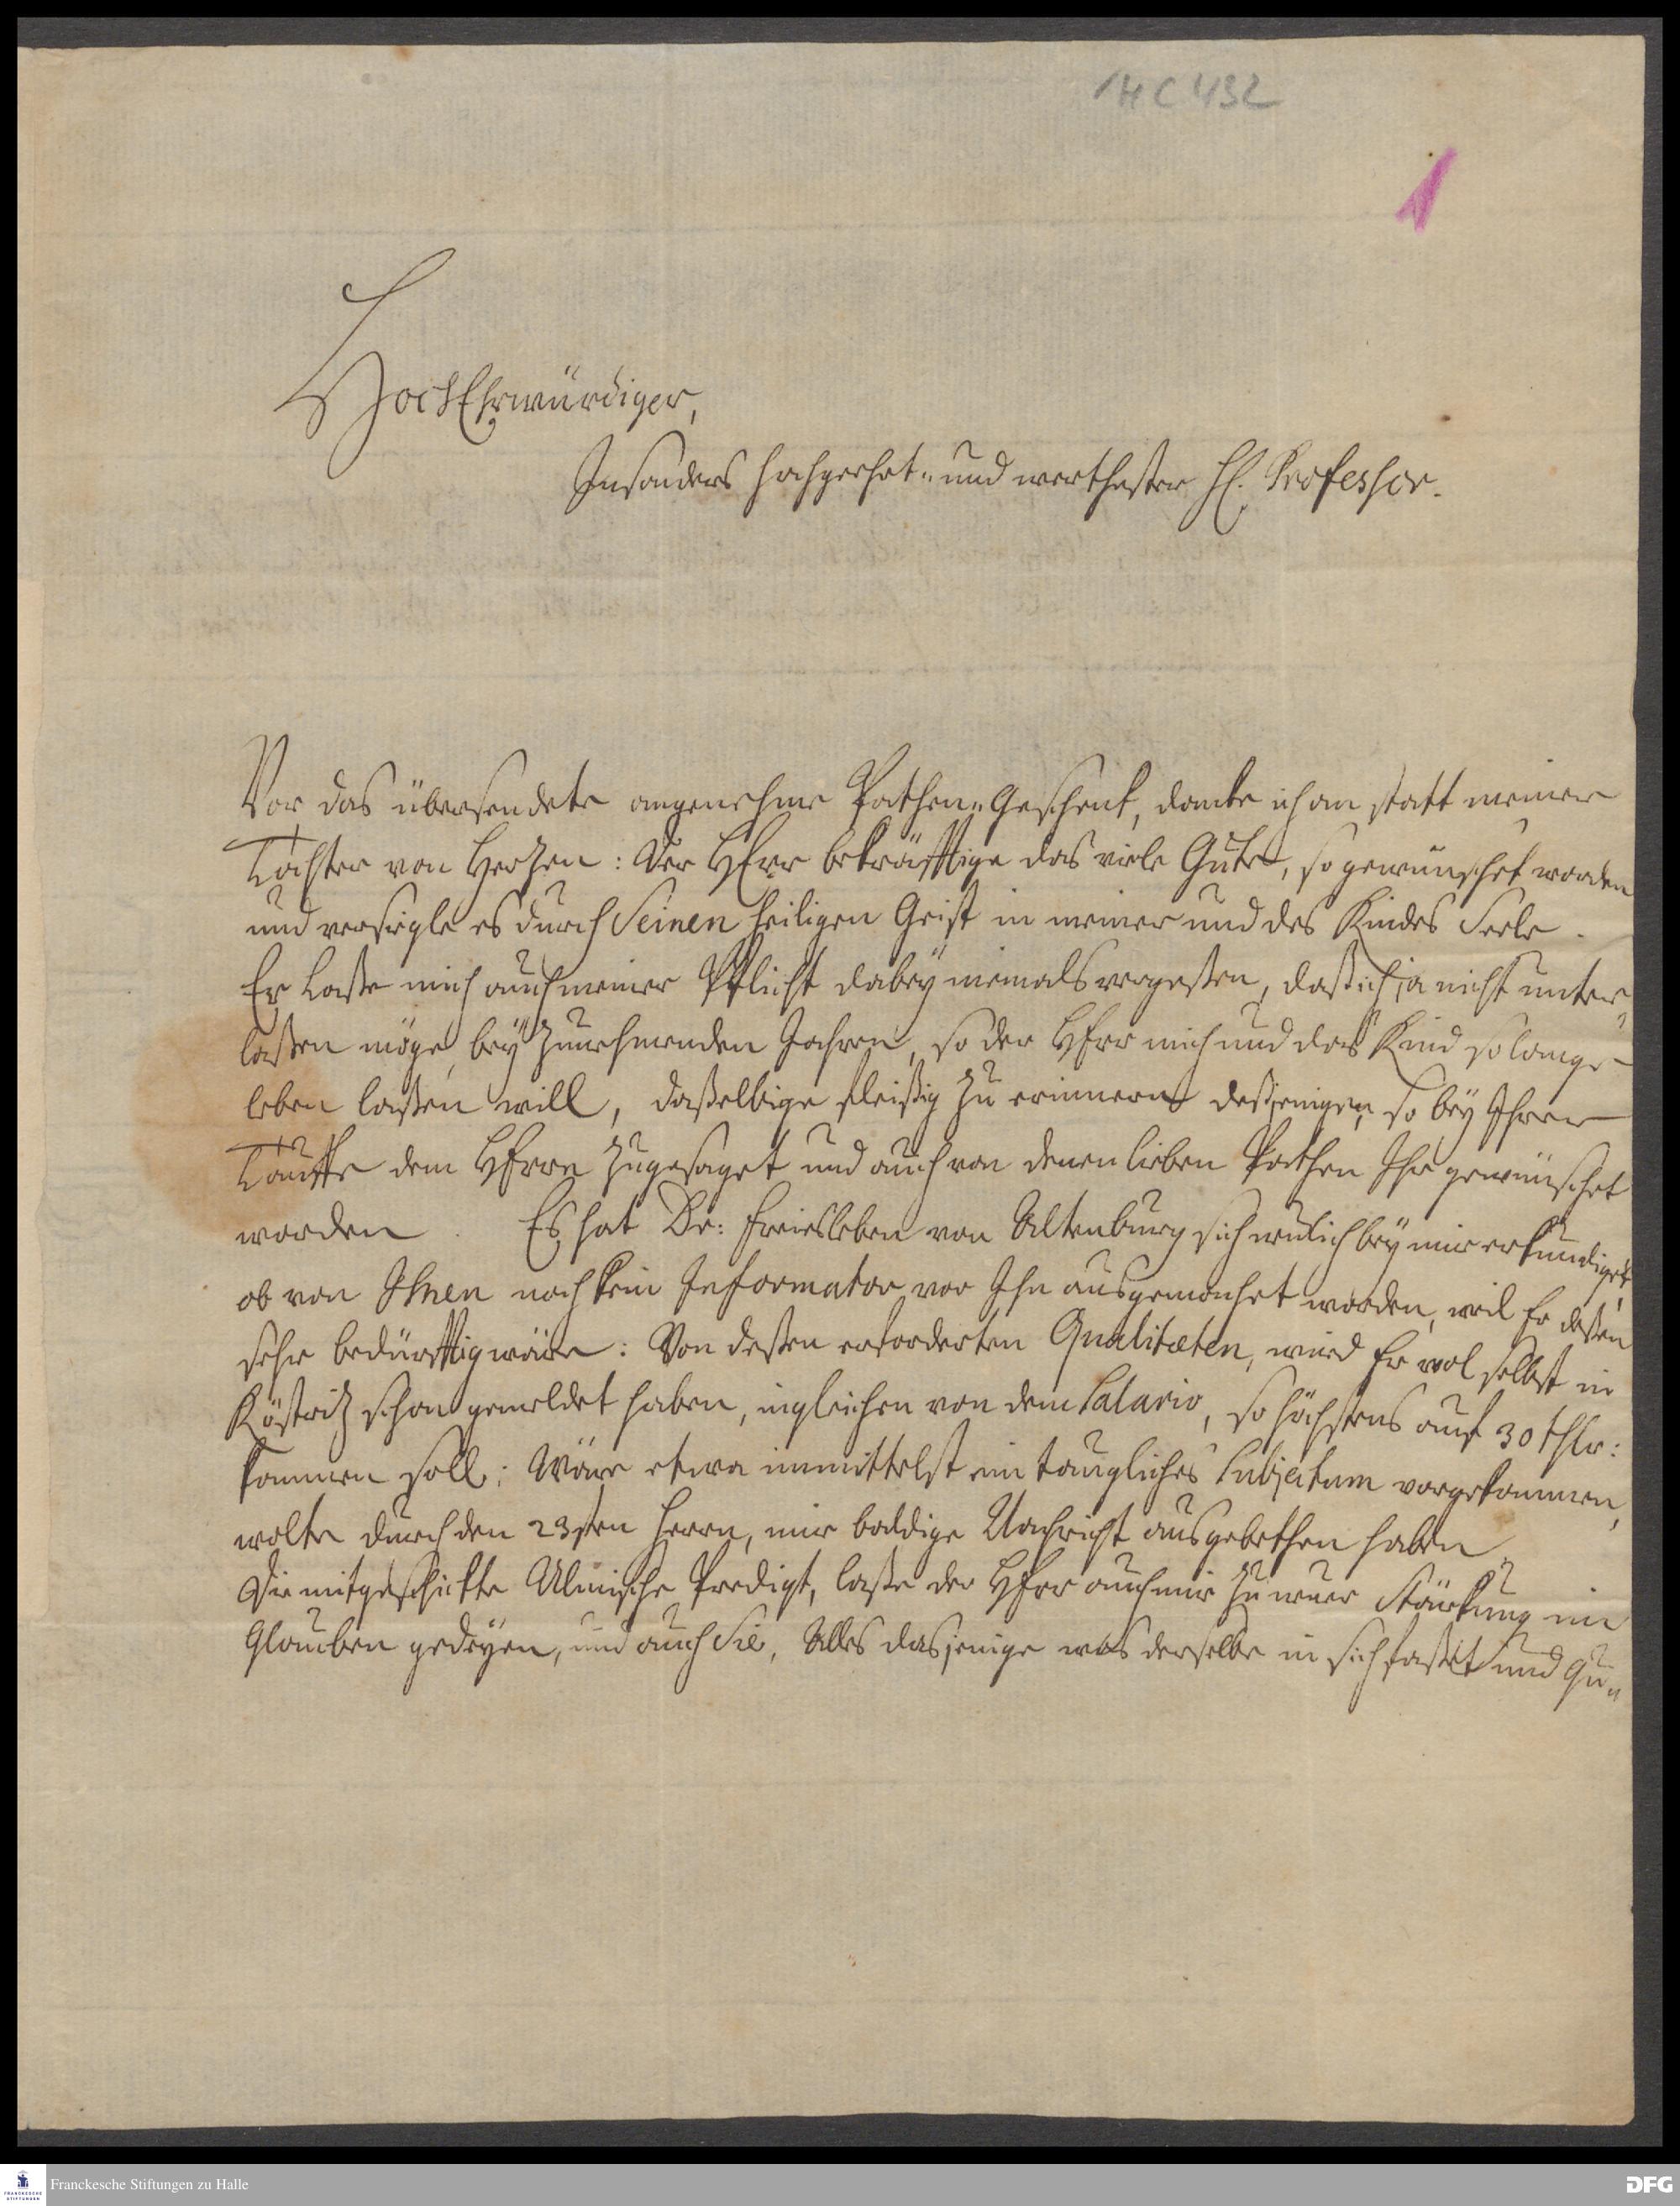 1
HC 432
HochEhrwürdiger,
Insonders hochgeehrt- und werthester H. Professor.
Vor das übersendete angenehme Pathen-Geschenk, dancke ich an statt meiner
Tochter von Hertzen: Der HErr bekräfftige das viele Gute, so gewünschet worden
und versiegle es durch Seinen heiligen Geist in meiner und des Kindes Seele.
Er Laße mich auch meiner Pflicht dabey niemals vergeßen, daß ich ja nicht unter-
laßen möge, bey zunehmenden Jahren, so der HErr mich und das Kind so lange
leben laßen will, daßelbige fleißig zu erinnern desjenigen, so bey Ihrer
Tauffe dem HErrn zugesaget und auch von denen lieben Pathen Ihr gewünschet
worden. Es hat Dr: Freiesleben von Altenburg sich neulich bey mir erkundiget,
ob von Ihnen noch kein Informator vor Ihn ausgemachet worden, weil Er deßen
sehr bedürfftig wäre: Von deßen erforderten Qualitæten, wird Er wol selbst in
Köstritz schon gemeldet haben, ingleichen von dem Salario, so höchstens auf 30 thlr:
kommen soll; Wäre etwa immittelst ein taugliches Subjectum vorgekommen,
wolte durch den 23sten Herrn, mir baldige Nachricht ausgebethen haben.
Die mitgeschickte Ulmische Predigt, laße der HErr auch mir zu neuer Stärkung im
Glauben gedeyen, und auch Sie, Alles dasjenige was derselbe in sich faßet und Gu-
Franckesche Stiftungen zu Halle
DFG